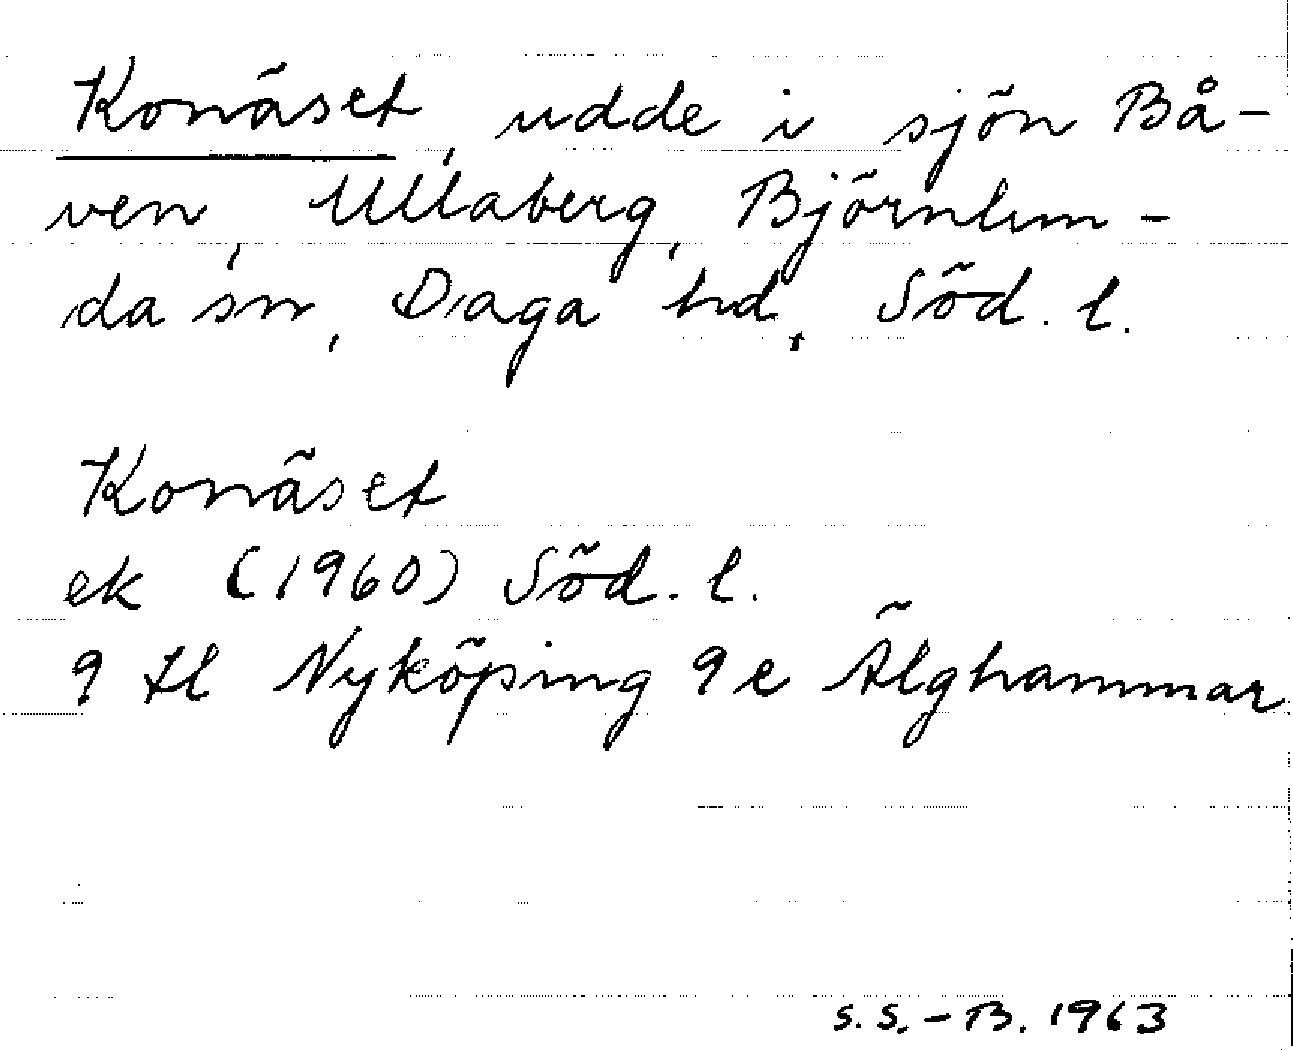 Konäset, udde i sjön Bå-
ven, Ullaberg, Björnlun-
da sn, Daga hd, Söd. l.
Konäset
ek (1960) Söd. l.
9 H Nyköping 9 e Älghammar
S.S.-B. 1963